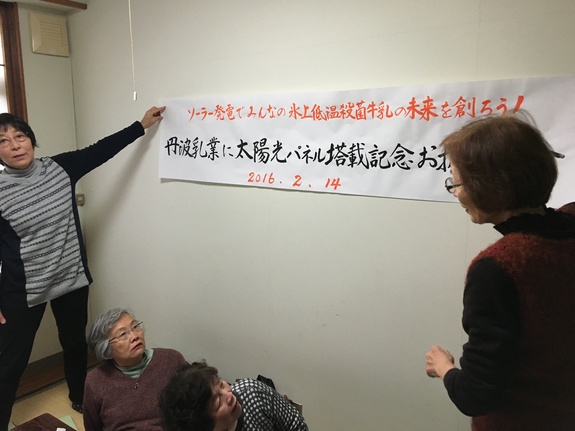 ソーラー発電でみんなの氷上低温殺菌牛乳の未来を創ろう!
丹波乳業に太陽光パネル塔載記念お
2016.2.14